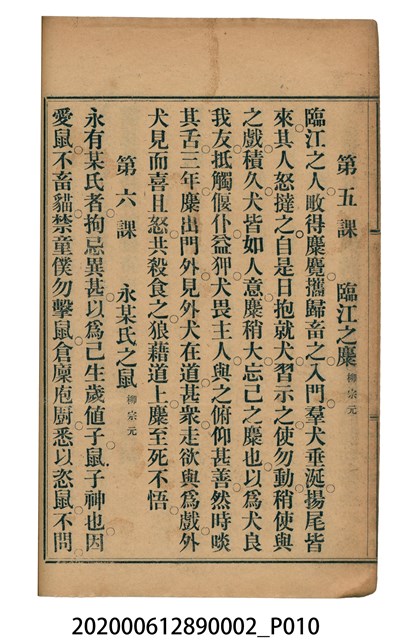 第五課 臨江之麋 柳宗元
臨江之人畋得麋麑攜歸畜之入門羣犬垂涎揚尾皆
來其人怒撻之自是日抱就犬習示之使勿動稍使與
之戲積久犬皆如人意麋稍大忘己之麋也以爲犬良
我友抵觸偃仆益狎犬畏主人與之俯仰甚善然時啖
其舌三年麋出門外見外犬在道甚衆走欲與爲戲外
犬見而喜且怒共殺食之狼藉道上麋至死不悟
第六課 永某氏之鼠 柳宗元
永有某氏者拘忌異甚以爲己生歲値子鼠子神也因
愛鼠不畜貓禁童僕勿擊鼠倉廩庖廚悉以恣鼠不問
202000612890002_P010